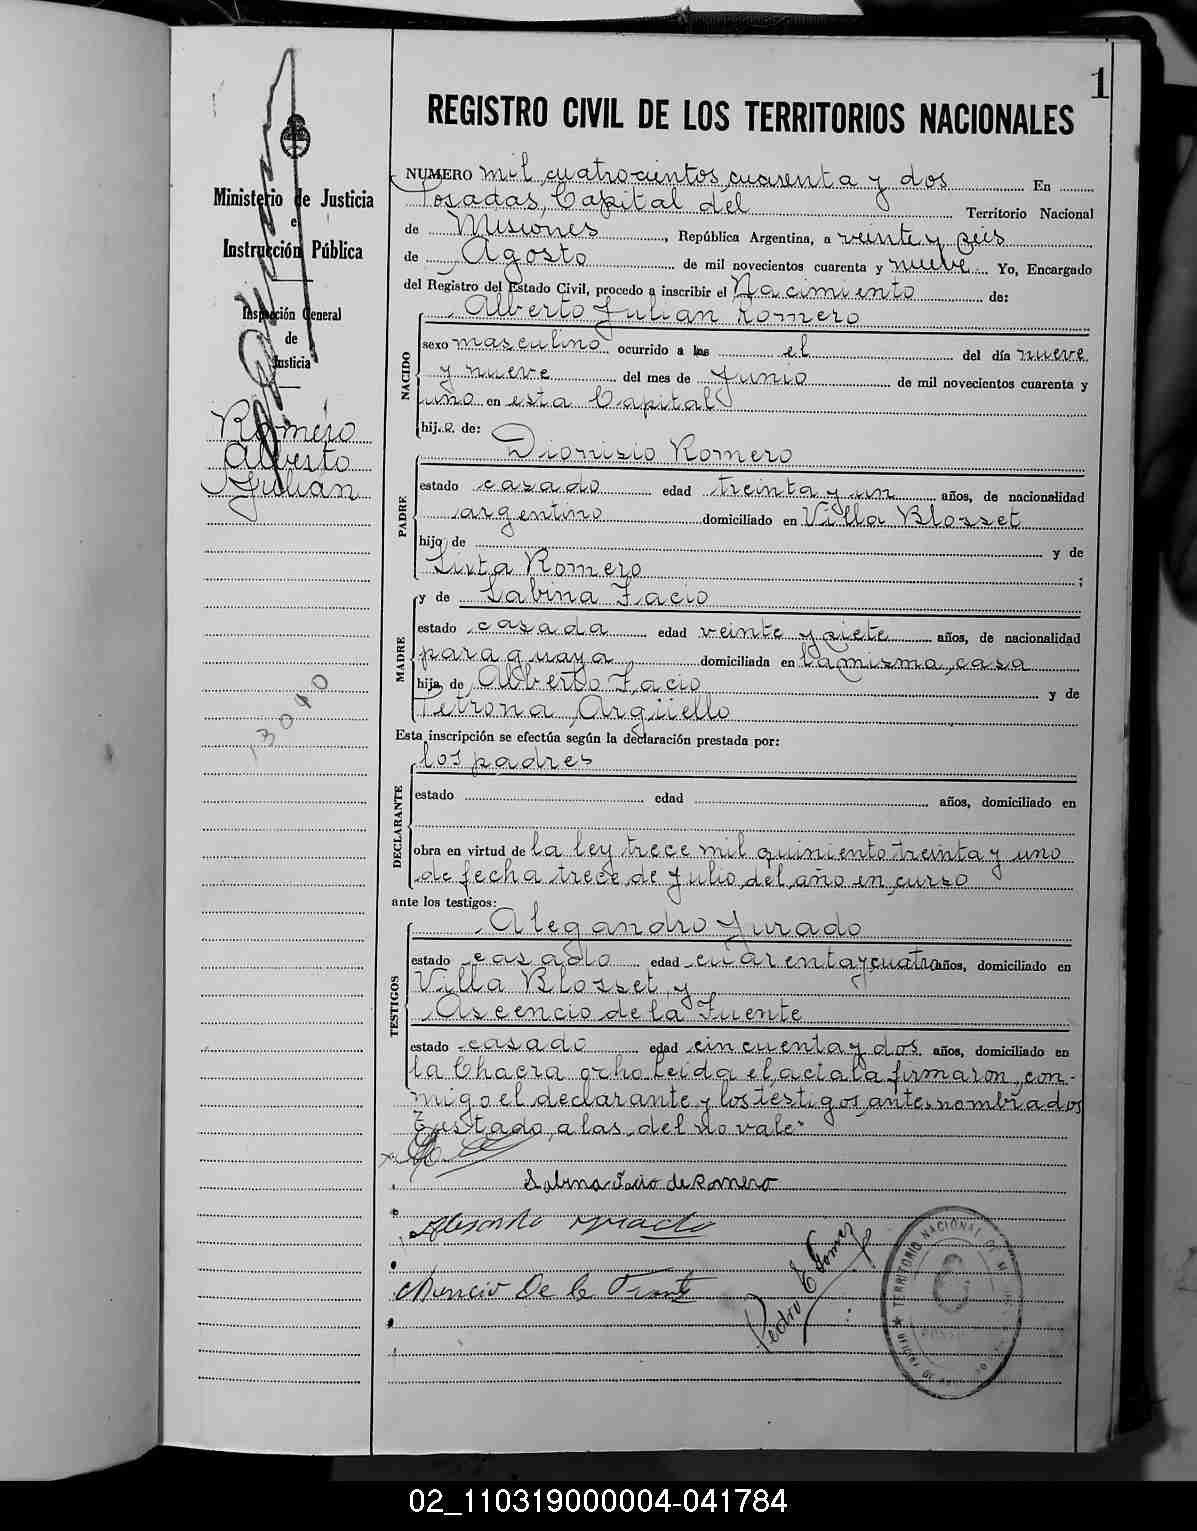 1
REGISTRO CIVIL DE LOS TERRITORIOS NACIONALES
Ministerio de Justicia
e
Instrucción Pública
Inspección General
de
Justicia
Romero
Alberto
Julian
13040
NUMERO mil cuatrocientos cuarenta y dos En
Posadas, Capital del Territorio Nacional
de Misiones, República Argentina, a veinte y seis
de Agosto de mil novecientos cuarenta y nueve Yo, Encargado
del Registro del Estado Civil, procedo a inscribir el Nacimiento de:
Alberto Julian Romero
NACIDO
sexo masculino ocurrido a las el del día nueve
y nueve del mes de Junio de mil novecientos cuarenta y
uno en esta Capital
hij o de:
Dionisio Romero
PADRE
estado casado edad treinta y un años, de nacionalidad
argentino domiciliado en Villa Blosset
hijo de y de
Sixta Romero ;
MADRE
y de Sabina Facio
estado casada edad veinte y siete años, de nacionalidad
paraguaya domiciliada en la misma casa
hija de Alberto Facio y de
Petrona Argüello
Esta inscripción se efectúa según la declaración prestada por:
los padres
DECLARANTE
estado edad años, domiciliado en
obra en virtud de la ley trece mil quiniento treinta y uno
de fecha trece de Julio del año en curso
ante los testigos:
Alegandro Jurado
TESTIGOS
estado casado edad cuarenta y cuatro años, domiciliado en
Villa Blosset y
Ascencio de la Fuente
estado casado edad cincuenta y dos años, domiciliado en
la Chacra ocho Leida el acta la firmaron con-
migo el declarante y los testigos ante nombrados
Testado, a las, del no vale
Sabina Facio de Romero
Alejandro Jurado
Asencio De la Fuente
Pedro E Gomez
TERRITORIO NACIONAL DE
02_110319000004-041784